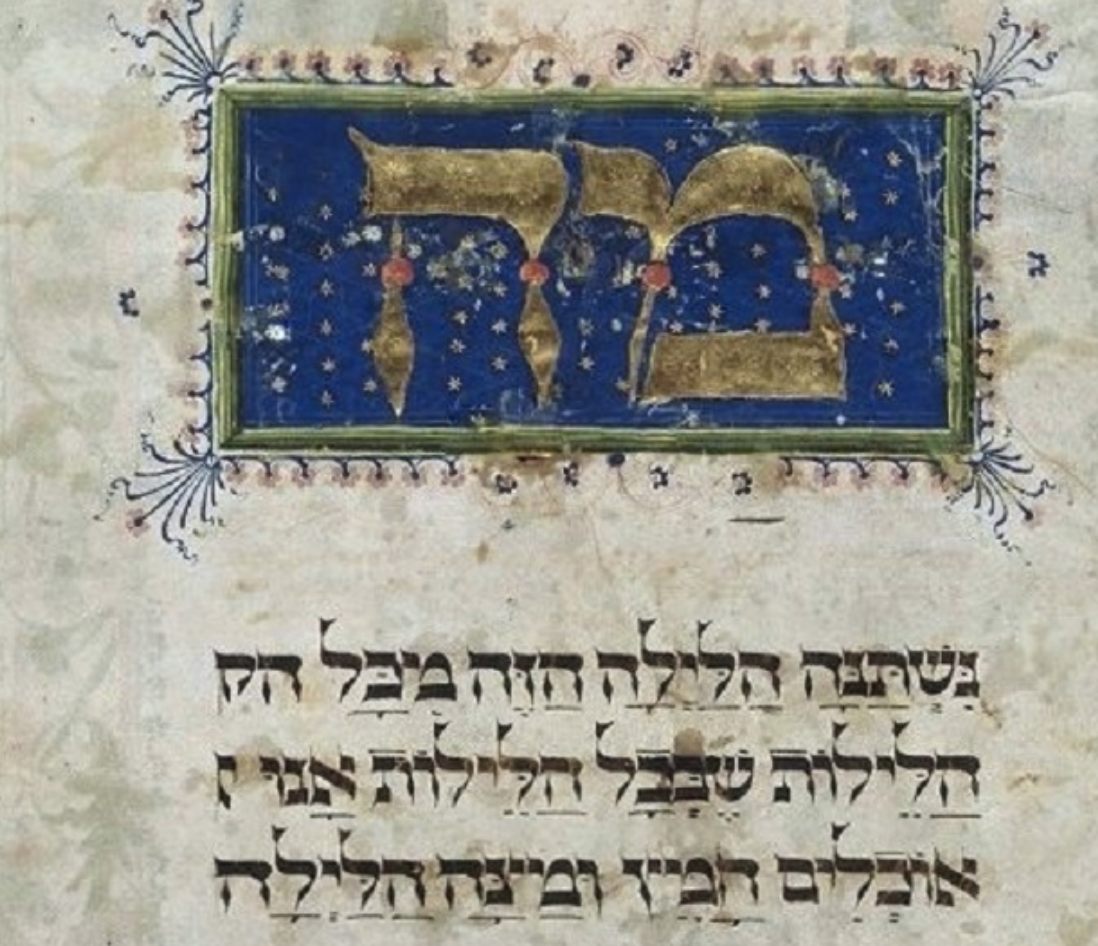 מה
נשתנה הלילה הזה מכל הק
הלילות שבכל הלילות אנו
אוכלים חמץ ומצה הלילה